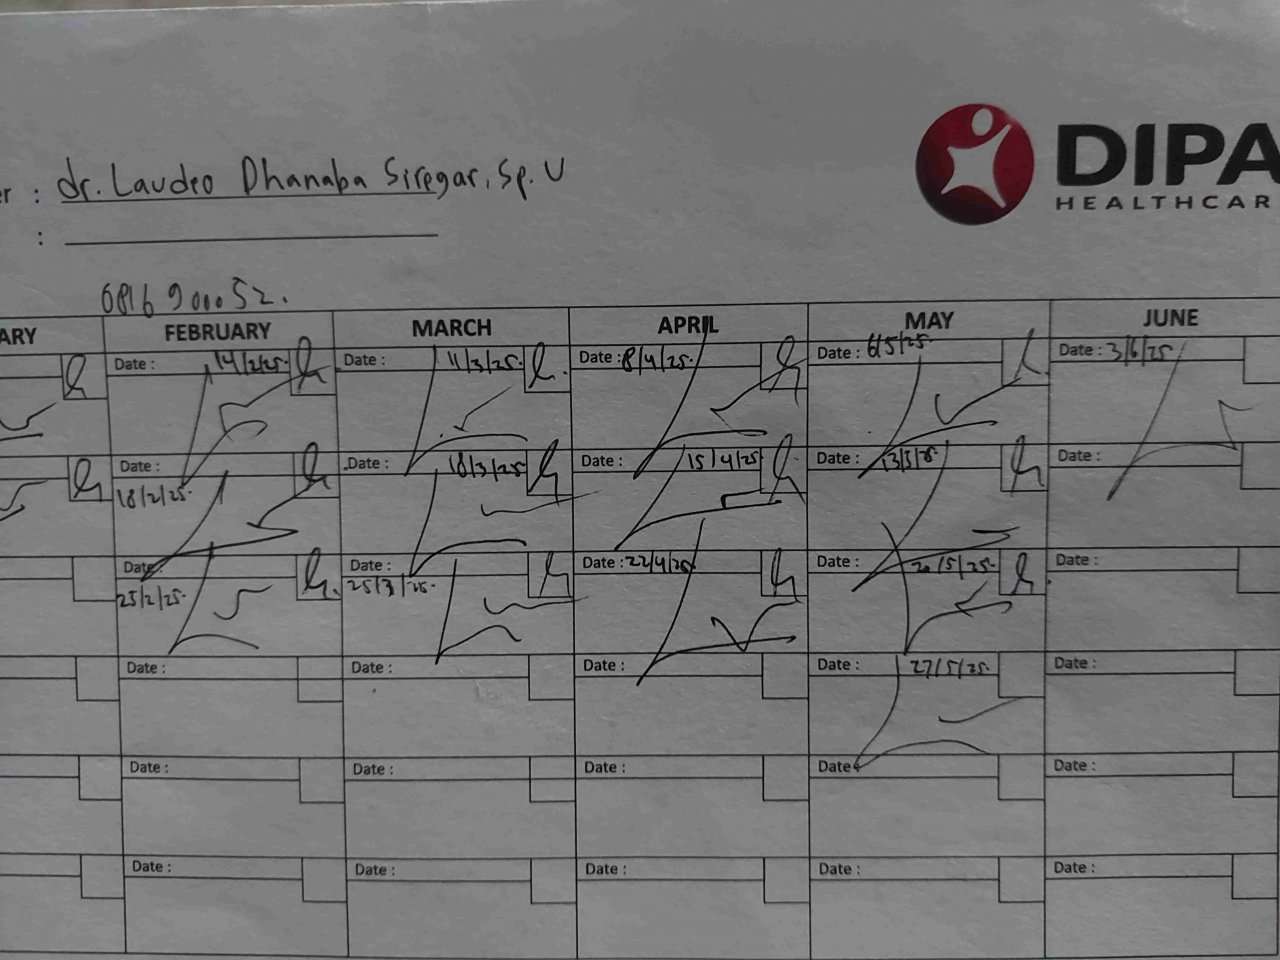 er : dr. Laudeo Dhanaba Siregar, Sp. U
:
DIPA
HEALTHCAR
0816 900052.
ARY FEBRUARY MARCH APRIL MAY JUNE
Date : 14/2/25. Date : 11/3/25. Date : 8/4/25. Date : 6/5/25. Date : 3/6/25
Date : 18/2/25. Date : 18/3/25 Date : 15/4/25 Date : 13/5/25 Date :
Date : 25/2/25. Date : 25/3/25. Date : 22/4/25. Date : 20/5/25. Date :
Date : Date : Date : Date : 27/5/25. Date :
Date : Date : Date : Date : Date :
Date : Date : Date : Date : Date :